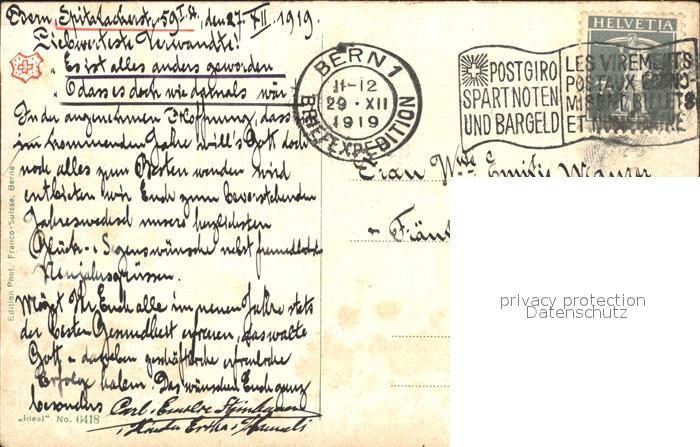 Bern, Spitalackerstr. 59 I. St., den 27. XII. 1919.
Liebwerteste Verwandte!
"Es ist alles anders geworden
O dass es doch wie damals wär
In der angenehmen Hoffnung, dass
im kommenden Jahre will's Gott doch
noch alles zum Besten wenden wird
entbieten wir Euch zum bevorstehenden
Jahreswechsel unsere herzlichsten
Glück- u. Segenswünsche nebst freundlichen
Neujahrsgrüssen.
Mögt Ihr Euch alle im neuen Jahre stets
der besten Gesundheit erfreuen, das walte
Gott u. daneben geschäftliche erfreuliche
Erfolge haben. Das wünschen Euch ganz
besonders Carl
"Ideal" No. 6418
Edition Phot. Franco-Suisse, Berne
BERN 1
11-12
29 · XII
1919
BRIEFEXPEDITION
POSTGIRO
SPART NOTEN
UND BARGELD
LES VIREMENTS
POSTAUX
BILLETS
ET
HELVETIA
Frau Wwe Emilie
privacy protection
Datenschutz